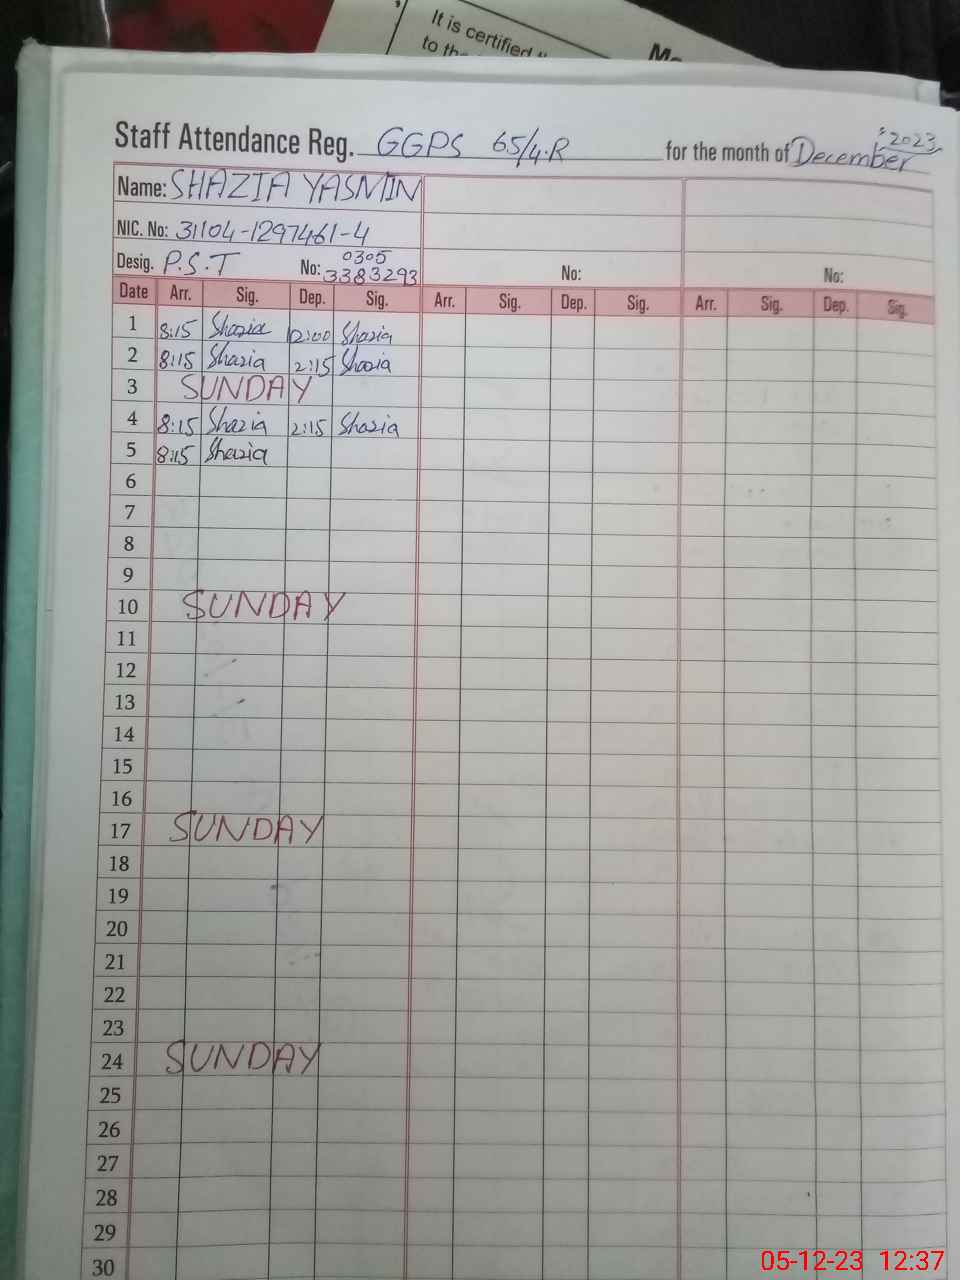 It is certified
to the
Staff Attendance Reg. GGPS 65/4.R for the month of December 2023
Name: SHAZIA YASMIN
NIC. No: 31104-1297461-4
Desig. P.S.T No: 0305 3383293 No: No:
Date Arr. Sig. Dep. Sig. Arr. Sig. Dep. Sig. Arr. Sig. Dep. Sig.
1 8:15 Shazia 12:00 Shazia
2 8:15 Shazia 2:15 Shazia
3 SUNDAY
4 8:15 Shazia 2:15 Shazia
5 8:15 Shazia
6
7
8
9
10 SUNDAY
11
12
13
14
15
16
17 SUNDAY
18
19
20
21
22
23
24 SUNDAY
25
26
27
28
29
30
05-12-23 12:37